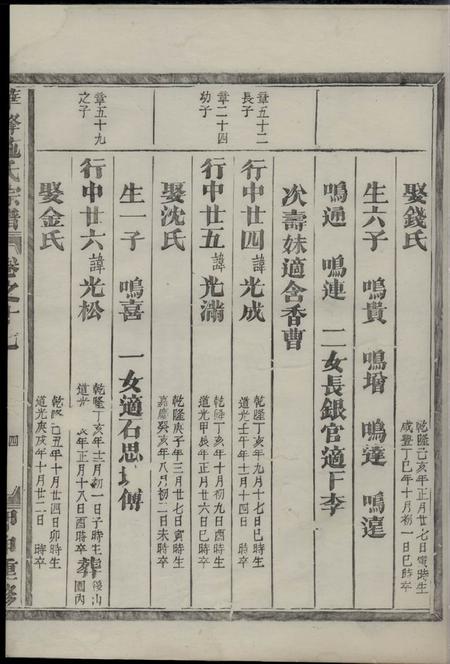 娶錢氏
乾隆己亥年正月廿七日寅時生
咸豐丁巳年十月初一日巳時卒
生六子 鳴貴 鳴增 鳴達 鳴遠
鳴通 鳴連 二女長銀官適下李
次壽妹適含香曹
章五十二
長子
行中廿四諱光成
乾隆丁亥年九月十七日巳時生
道光壬午年十一月十四日 時卒
章二十四
功子
行中廿五諱光滿
乾隆丁亥年十月初九日酉時生
道光甲辰年正月廿六日巳時卒
娶沈氏
乾隆庚子年三月廿七日寅時生
嘉慶癸亥年八月初二日未時卒
生一子 鳴喜 一女適石思 傅
章五十九
之子
行中廿六諱光松
乾隆丁亥年十二月初一日子時生
道光 年正月十八日酉時卒
葬後山
園內
娶金氏
乾隆己丑年十月廿四日卯時生
道光庚戌年十月廿二日 時卒
施氏宗譜
卷之十七
四
甲申重修